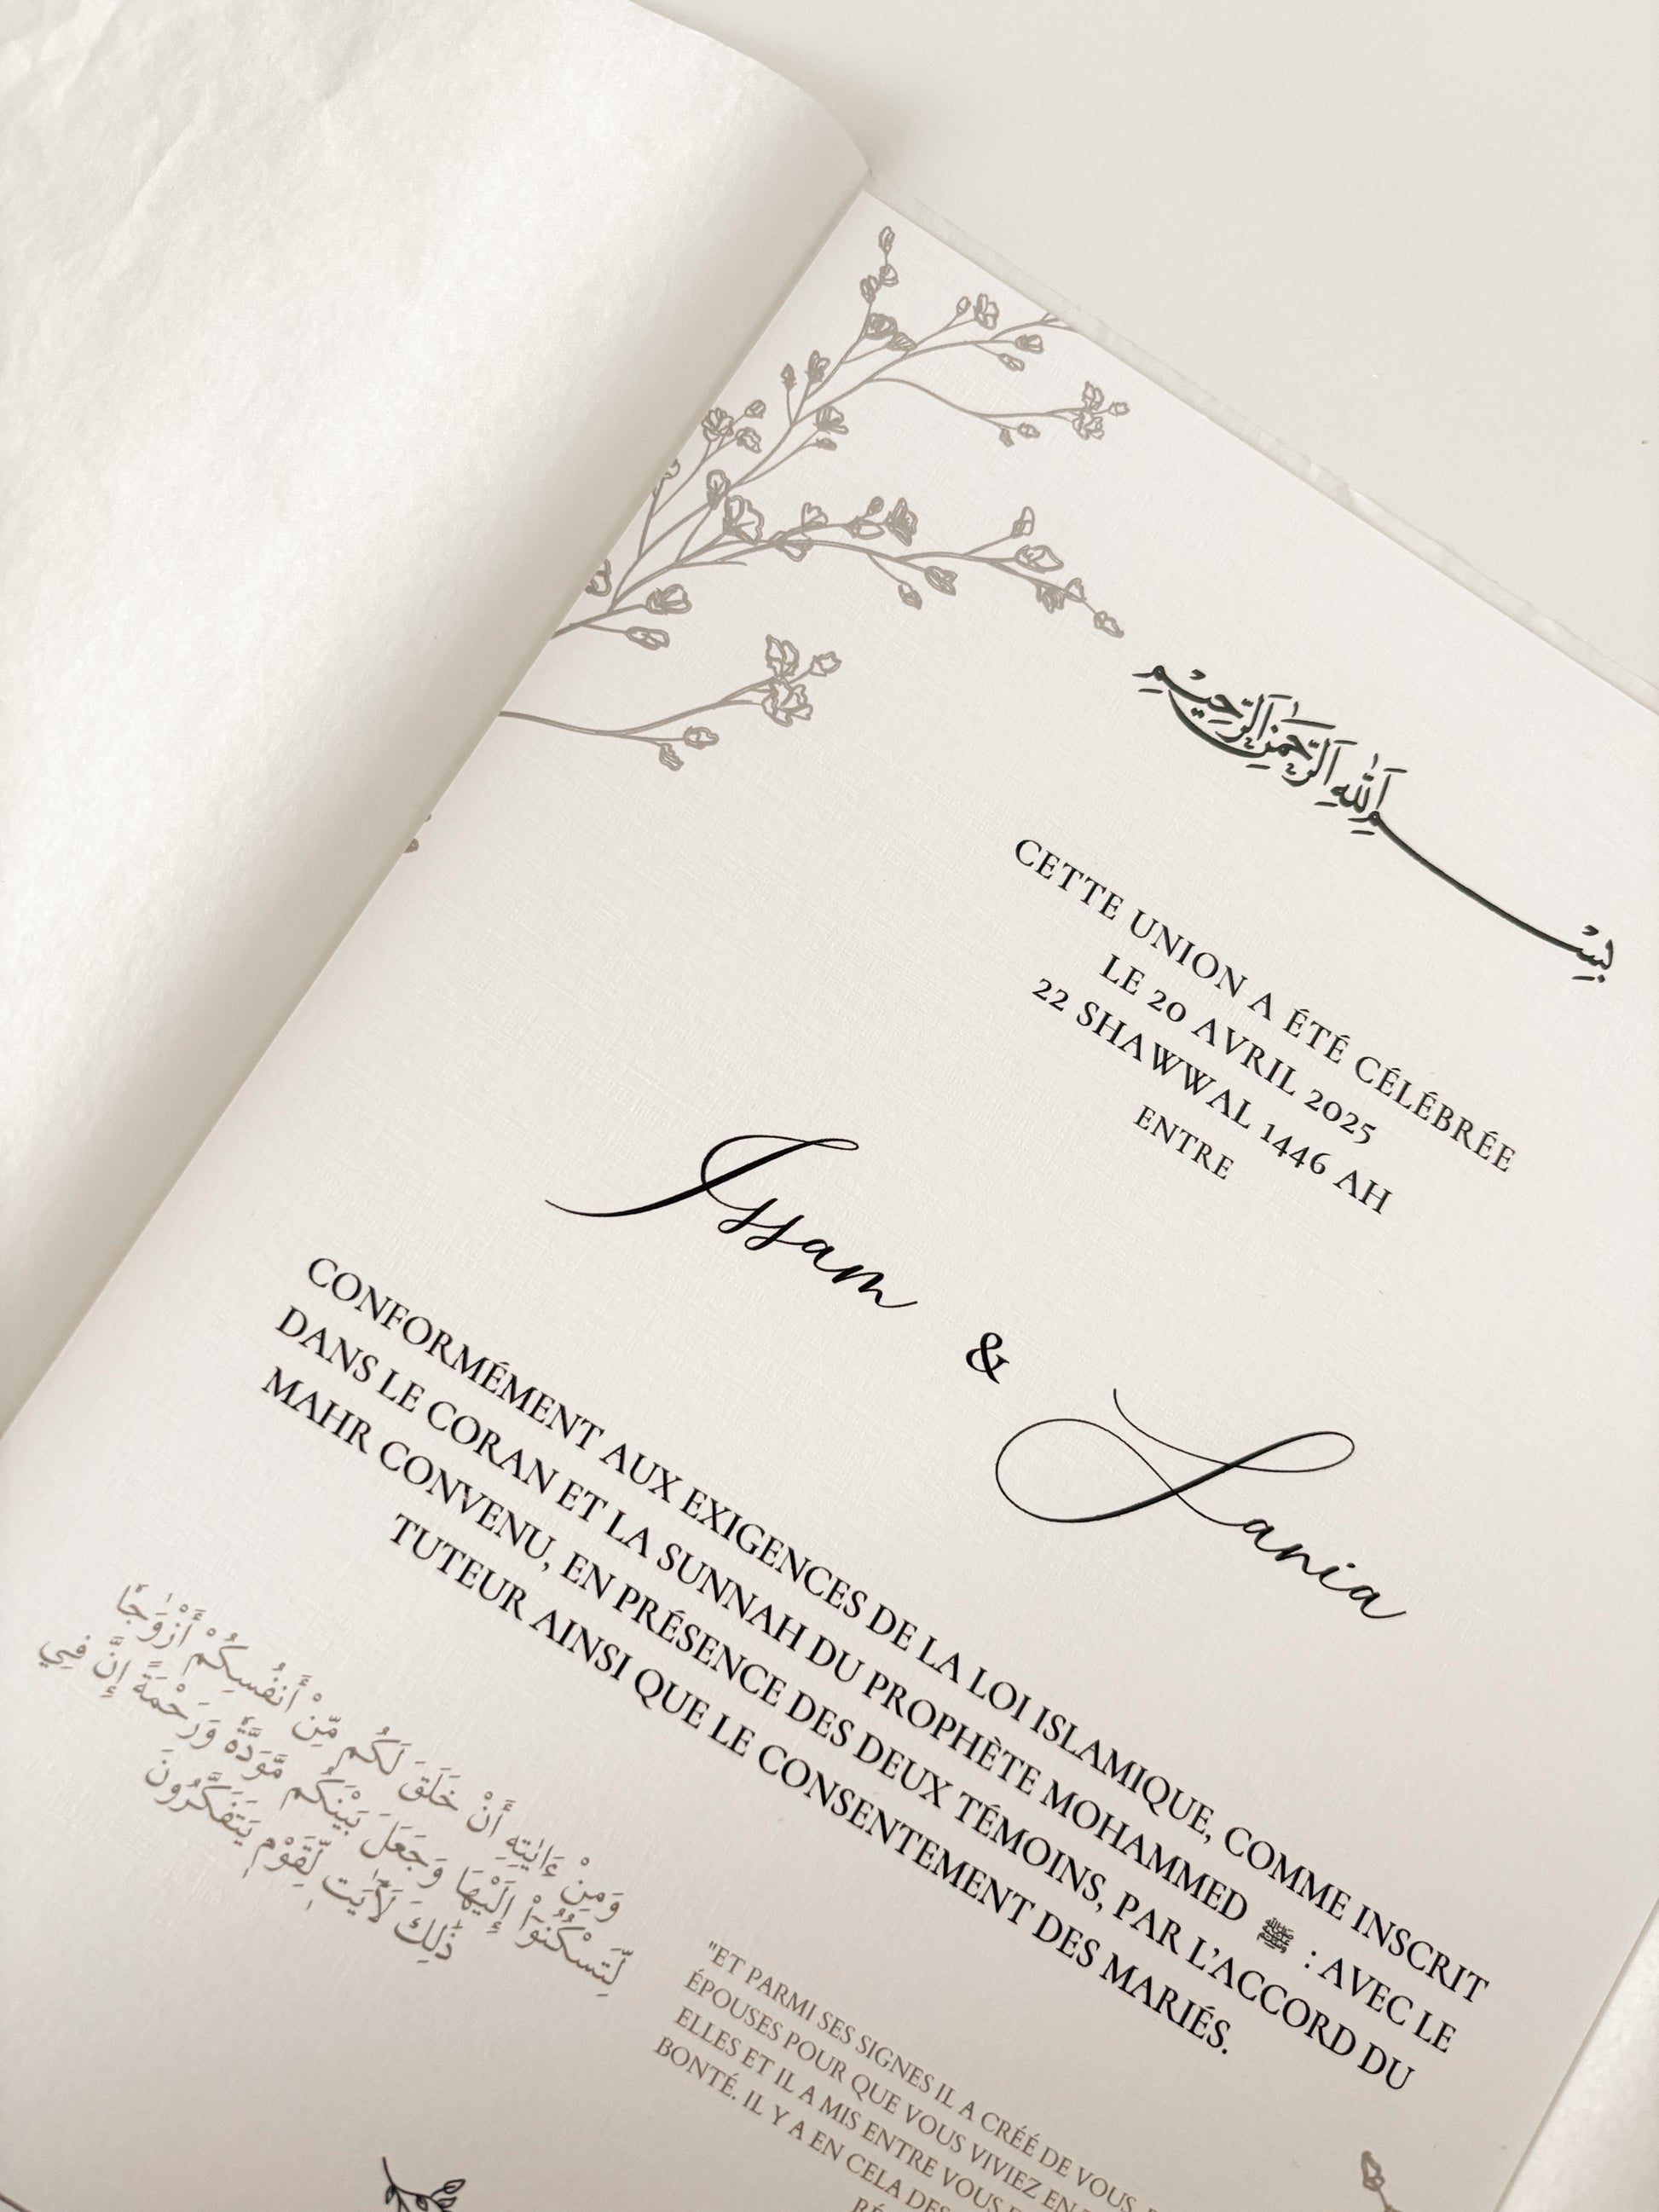 بِسْمِ ٱللَّهِ ٱلرَّحْمَٰنِ ٱلرَّحِيمِ
CETTE UNION A ÉTÉ CÉLÉBRÉE
LE 20 AVRIL 2025
22 SHAWWAL 1446 AH
ENTRE
Issam & Sania
CONFORMÉMENT AUX EXIGENCES DE LA LOI ISLAMIQUE, COMME INSCRIT
DANS LE CORAN ET LA SUNNAH DU PROPHÈTE MOHAMMED ﷺ : AVEC LE
MAHR CONVENU, EN PRÉSENCE DES DEUX TÉMOINS, PAR L’ACCORD DU
TUTEUR AINSI QUE LE CONSENTEMENT DES MARIÉS.
وَمِنْ ءَايَٰتِهِ أَنْ خَلَقَ لَكُم مِّنْ أَنفُسِكُمْ أَزْوَٰجًا
لِّتَسْكُنُوٓا۟ إِلَيْهَا وَجَعَلَ بَيْنَكُم مَّوَدَّةً وَرَحْمَةً إِنَّ فِي
ذَٰلِكَ لَءَايَٰتٍ لِّقَوْمٍ يَتَفَكَّرُونَ
"ET PARMI SES SIGNES IL A CRÉÉ DE VOUS,
ÉPOUSES POUR QUE VOUS VIVIEZ EN
ELLES ET IL A MIS ENTRE VOUS
BONTÉ. IL Y A EN CELA DES